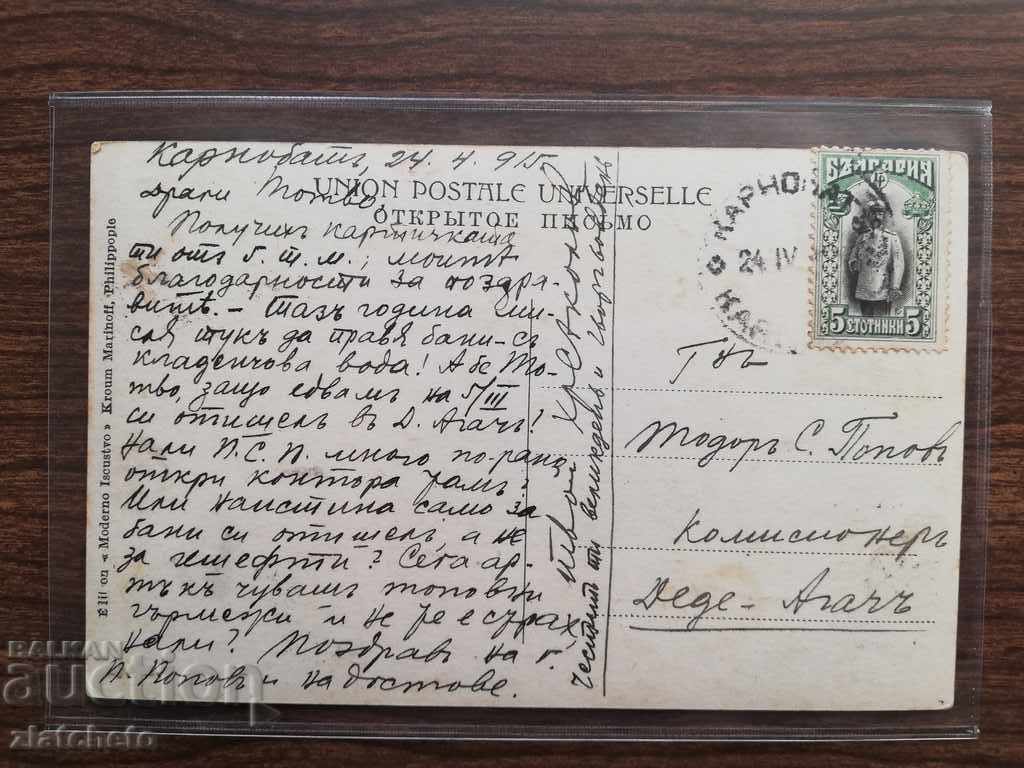 Карнобатъ, 24. 4. 915
Драги Тотьо,
UNION POSTALE UNIVERSELLE
ОТКРЫТОЕ ПИСЬМО
Получихъ картичката
ти отъ 5. т. м.; моитѣ
благодарности за поздра-
витѣ. - Тазъ година
тукъ да правя бани - съ
кладенчова вода! Абе То-
тьо, защо едвамъ на 5/III
си отишелъ въ Д. Агачъ!
Нали П.С.П. много по-рано
откри контора тамъ?
Или наистина само за
бани си отишелъ, а не
за гешефти? Сега ар-
тъкъ чувашъ топовни
гърмежи и не те е страх
нали? Поздравъ на г.
А. Попов и на достове.
твой
Честитъ ти великденъ и Георгьовденъ
БЪЛГАРИЯ
5 СТОТИНКИ 5
КАРНОБАТ
24 IV
КАР
Гнъ
Тодоръ С. Поповъ
Комисионеръ
Деде-Агачъ
« Moderno Iscustvo » Kroum Marinoff, Philippople
BALKAN
auction
zlatcheto